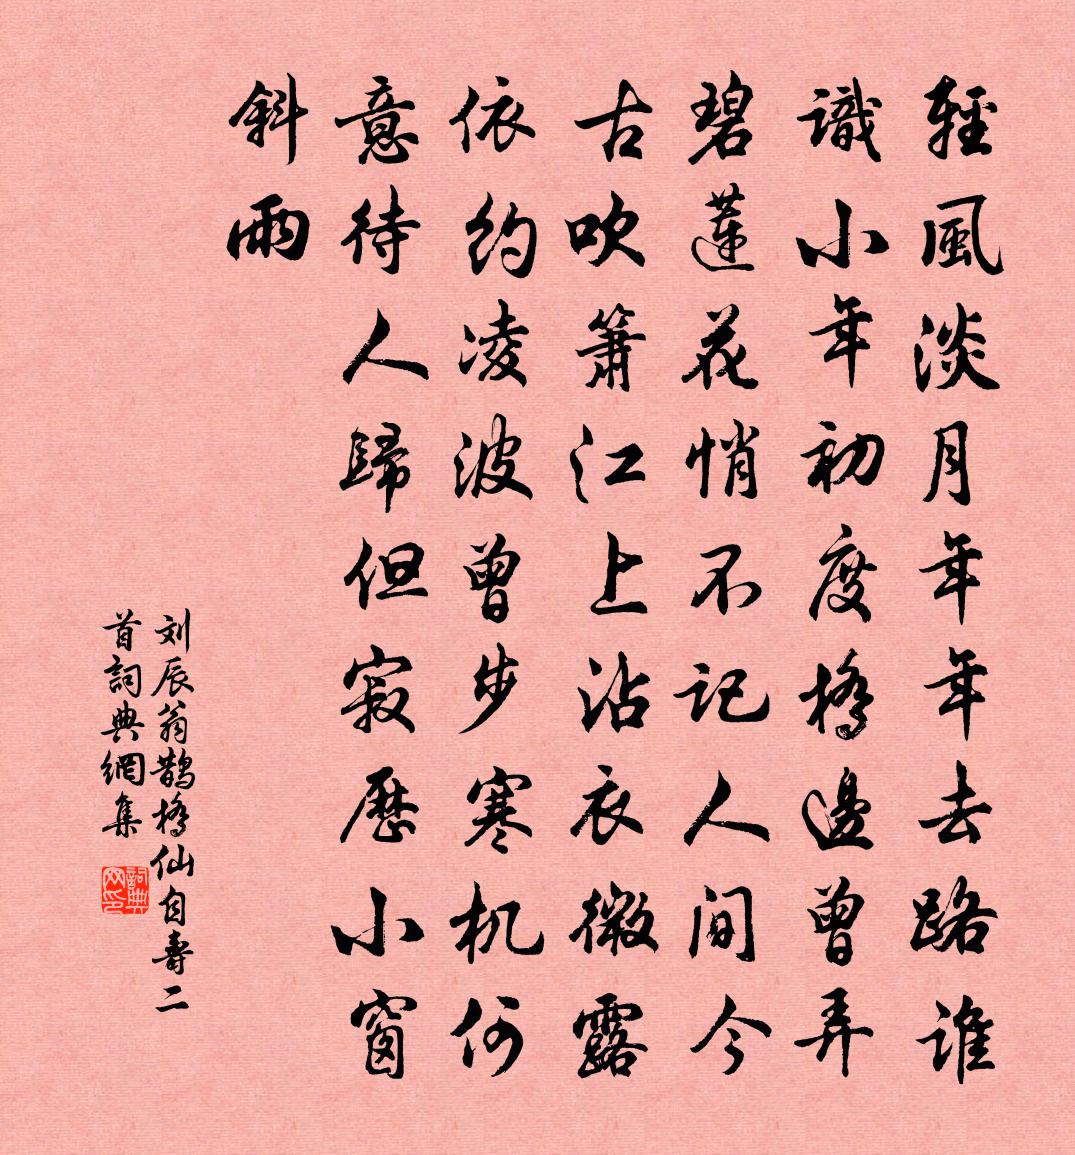 輕風淡月年年去路誰
識小年初度橋邊曾弄
碧蓮花悄不記人間今
古吹簫江上沾衣微露
依約凌波曾步寒机何
意待人歸但寂歷小窗
斜雨
刘辰翁鹊橋仙自壽二
首詞典網集
詞典网印